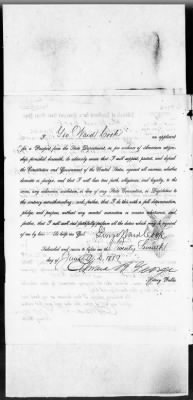 I, Geo Ward Cook an applicant
for a Passport from the State Department, do, for evidence of American citizenship
provided therewith, do solemnly swear that I will support, protect, and defend
the Constitution and Government of the United States, against all enemies, whether
domestic or foreign; and that I will bear true faith, allegiance, and loyalty, to the
same, any ordinance, resolution, or law of any State Convention, or Legislature to
the contrary notwithstanding; and, further, that I do this with a full determination,
pledge, and purpose, without any mental reservation or evasion whatsoever; and
further, that I will well and faithfully perform all the duties which may be required
of me by law: So help me God.
George Ward Cook
Subscribed and sworn to before me, this Twenty
day of June A.D. 188
George
Notary Public